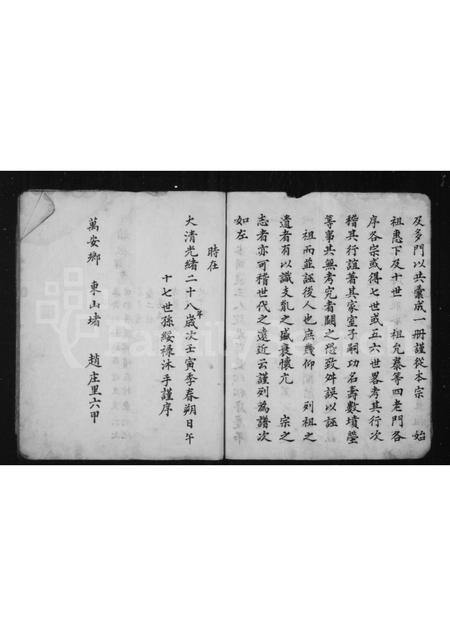 及多門以共彙成一冊謹從本宗　始
祖惠下及十世　祖允泰等四老門各
序各宗或得七世或五六世畧考其行次
稽其行誼著其家室子嗣功名壽數墳塋
等事共無考究者闕之恐致舛誤以誣
祖而並誣後人也庶幾仰　列祖之
遺者有以識支亂之盛衰懷亢　宗之
志者亦可稽世代之遠近云謹列為譜次
如左
時在
大清光緒二十八年歲次壬寅季春朔日午
十七世孫綏祿沐手謹序
萬安鄉　東山堵　趙庄里六甲